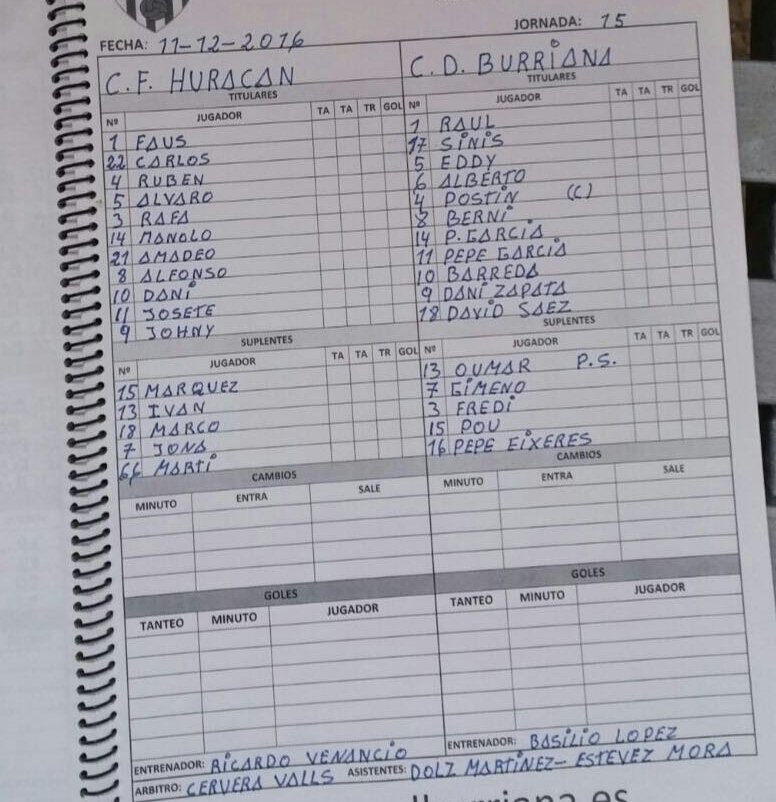 JORNADA: 15
FECHA: 11-12-2016
C.F. HURACAN C.D. BURRIANA
TITULARES TITULARES
Nº JUGADOR TA TA TR GOL Nº JUGADOR TA TA TR GOL
1 FAUS 1 RAUL
22 CARLOS 17 SINIS
4 RUBEN 5 EDDY
5 ALVARO 6 ALBERTO
3 RAFA 4 POSTIN (C)
14 MANOLO 8 BERNI
21 AMADEO 14 P. GARCIA
8 ALFONSO 11 PEPE GARCIA
10 DANI 10 BARREDA
11 JOSETE 9 DANI ZAPATA
9 JOHNY 18 DAVID SAEZ
SUPLENTES SUPLENTES
Nº JUGADOR TA TA TR GOL Nº JUGADOR TA TA TR GOL
15 MARQUEZ 13 OUMAR P.S.
13 IVAN 7 GIMENO
18 MARCO 3 FREDI
7 JONA 15 POU
66 MARTI 16 PEPE EIXERES
CAMBIOS CAMBIOS
MINUTO ENTRA SALE MINUTO ENTRA SALE
GOLES GOLES
TANTEO MINUTO JUGADOR TANTEO MINUTO JUGADOR
ENTRENADOR: RICARDO VENANCIO ENTRENADOR: BASILIO LOPEZ
ARBITRO: CERVERA VALLS ASISTENTES: DOLZ MARTINEZ- ESTEVEZ MORA